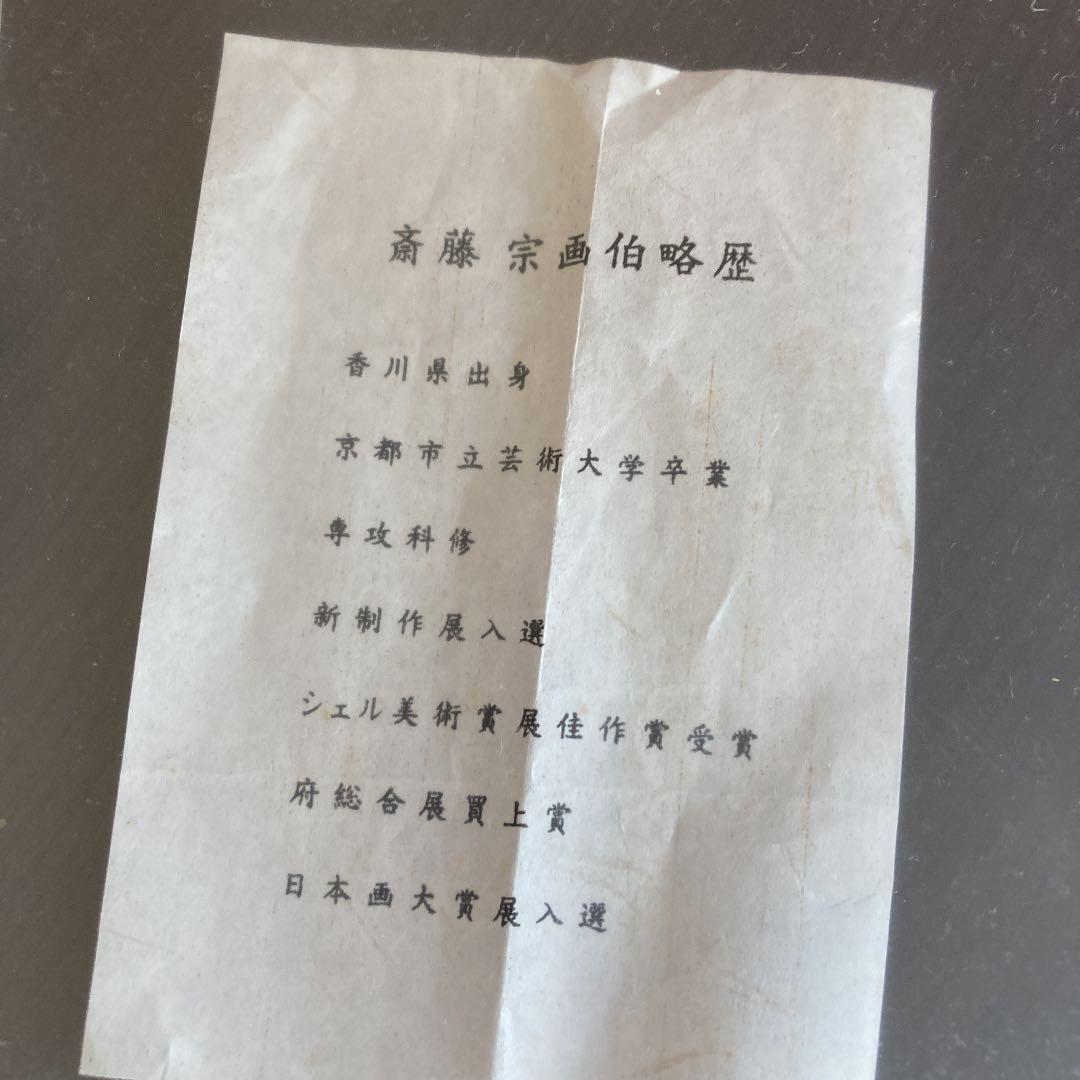 斎藤 宗画伯略歴
香川県出身
京都市立芸術大学卒業
専攻科修
新制作展入選
シェル美術賞展佳作賞受賞
府総合展買上賞
日本画大賞展入選